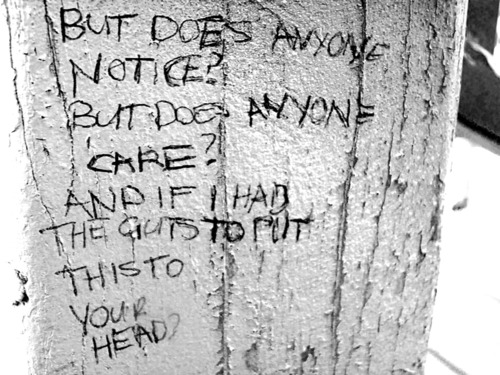 BUT DOES ANYONE
NOTICE?
BUT DOES ANYONE
CARE?
AND IF I HAD
THE GUTS TO PUT
THIS TO
YOUR
HEAD?